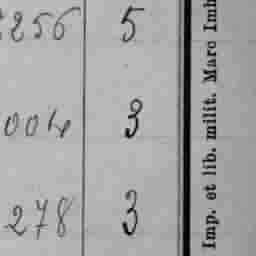 256 5
004 3
278 3
Imp. et lib. milit. Marc Imh